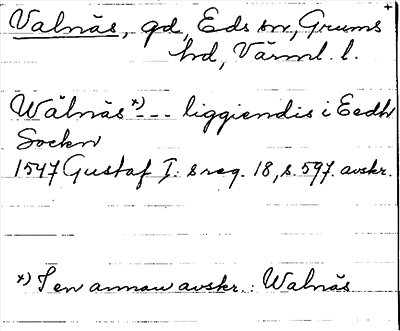 Valnäs, gd, Eds sn, Grums
hd, Värml. l.
Wälnäs *) --- liggiendis i Eedh
Sockn
1547 Gustaf I:s reg. 18, s. 597. avskr.
*) I en annan avskr.: Walnäs